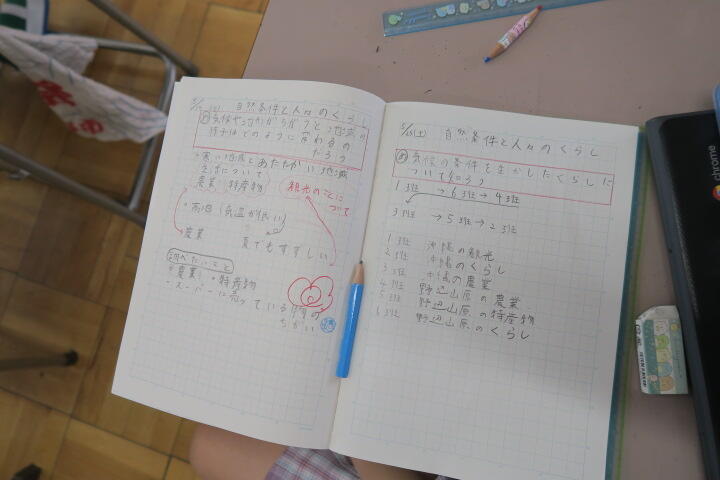 自然条件と人々のくらし
気候や地形がちがうと地域の
様子はどのように変わるの
だろう
・寒い地域とあたたかい地域
生活について
農業、特産物
観光のことに
ついて
・高い（気温が低い）
農業
夏でもすずしい
調べたいこと
・農業、・特産物
・スーパーに売っている物の
ちがい
5/15(土) 自然条件と人々のくらし
め 気候の条件を生かしたくらしに
ついて知ろう
1班 →6班→4班
3班 →5班→2班
1班 沖縄の観光
2班 沖縄のくらし
3班 沖縄の農業
4班 野辺山原の農業
5班 野辺山原の特産物
6班 野辺山原のくらし
chrome